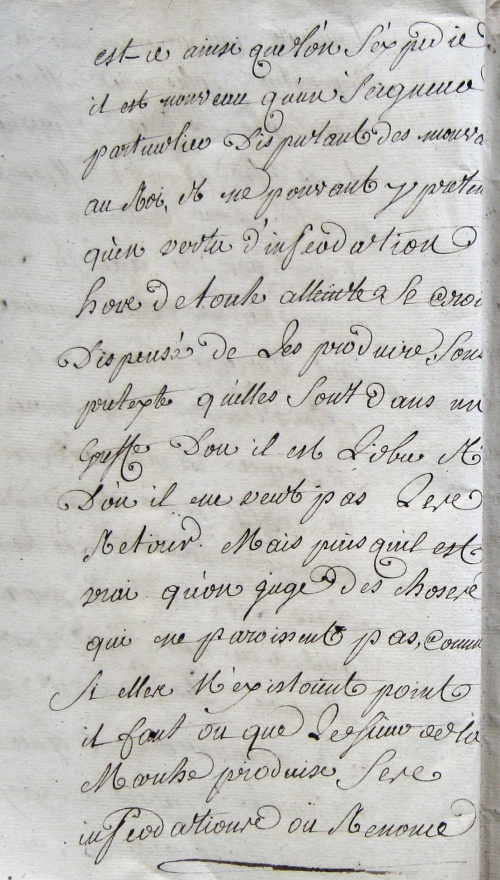 est-ce ainsi que l'on s'expedie
il est nouveau qu'un seigneur
particulier disputant des mouva
au Roi, et ne pouvant y preten
qu'en vertu d'infeodation
hors de toute atteinte se croi
dispensé de les produire, sous
pretexte qu'elles sont dans un
greffe d'ou il est
d'ou il ne veut pas les
Retirer. Mais puis qu'il est
vrai qu'on juge des choses
qui ne paroissent pas, comm
si elles n'existoient point
il faut ou que de la
Marche produise ses
infeodations ou Renonce